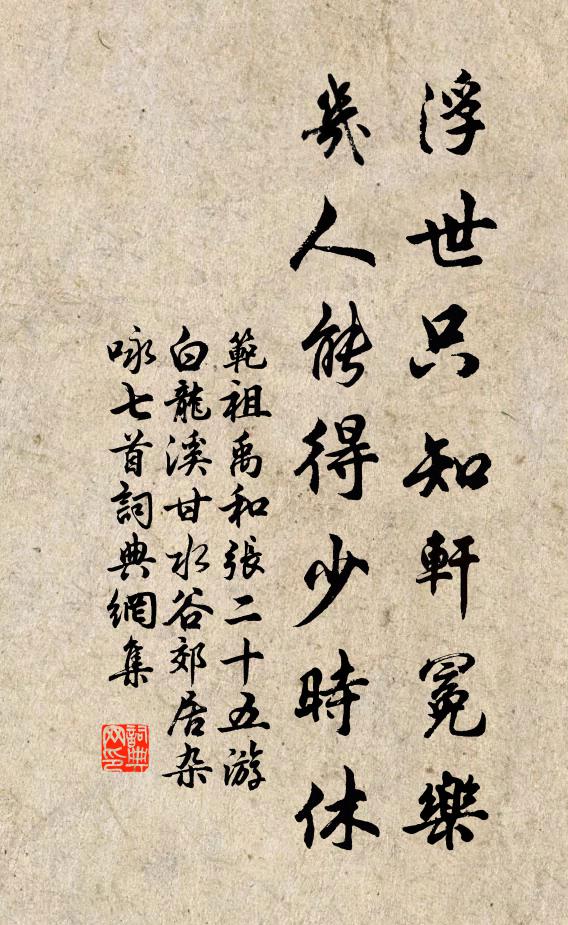 浮世只知軒冕樂
幾人能得少時休
範祖禹和張二十五游
白龍溪甘水谷郊居杂
咏七首詞典網集
詞典
网印